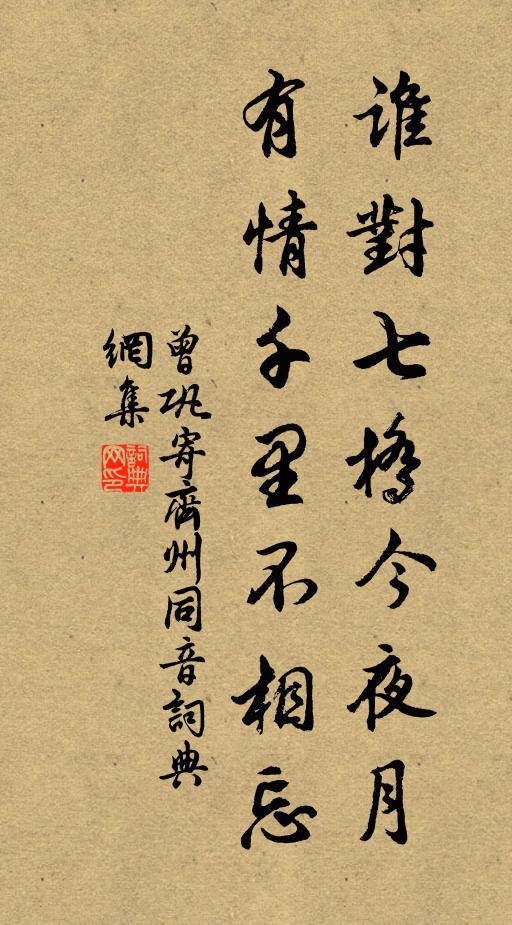 誰對七橋今夜月
有情千里不相忘
曾巩寄齊州同音詞典
網集
詞典
网印